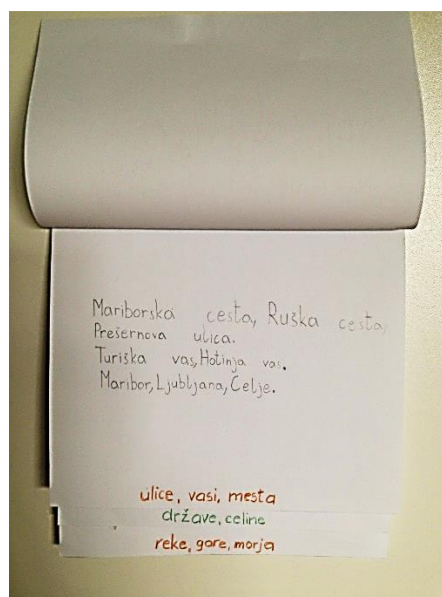 Mariborska cesta, Ruška cesta,
Prešernova ulica.
Turiška vas, Hotinja vas.
Maribor, Ljubljana, Celje.
ulice, vasi, mesta
države, celine
reke, gore, morja